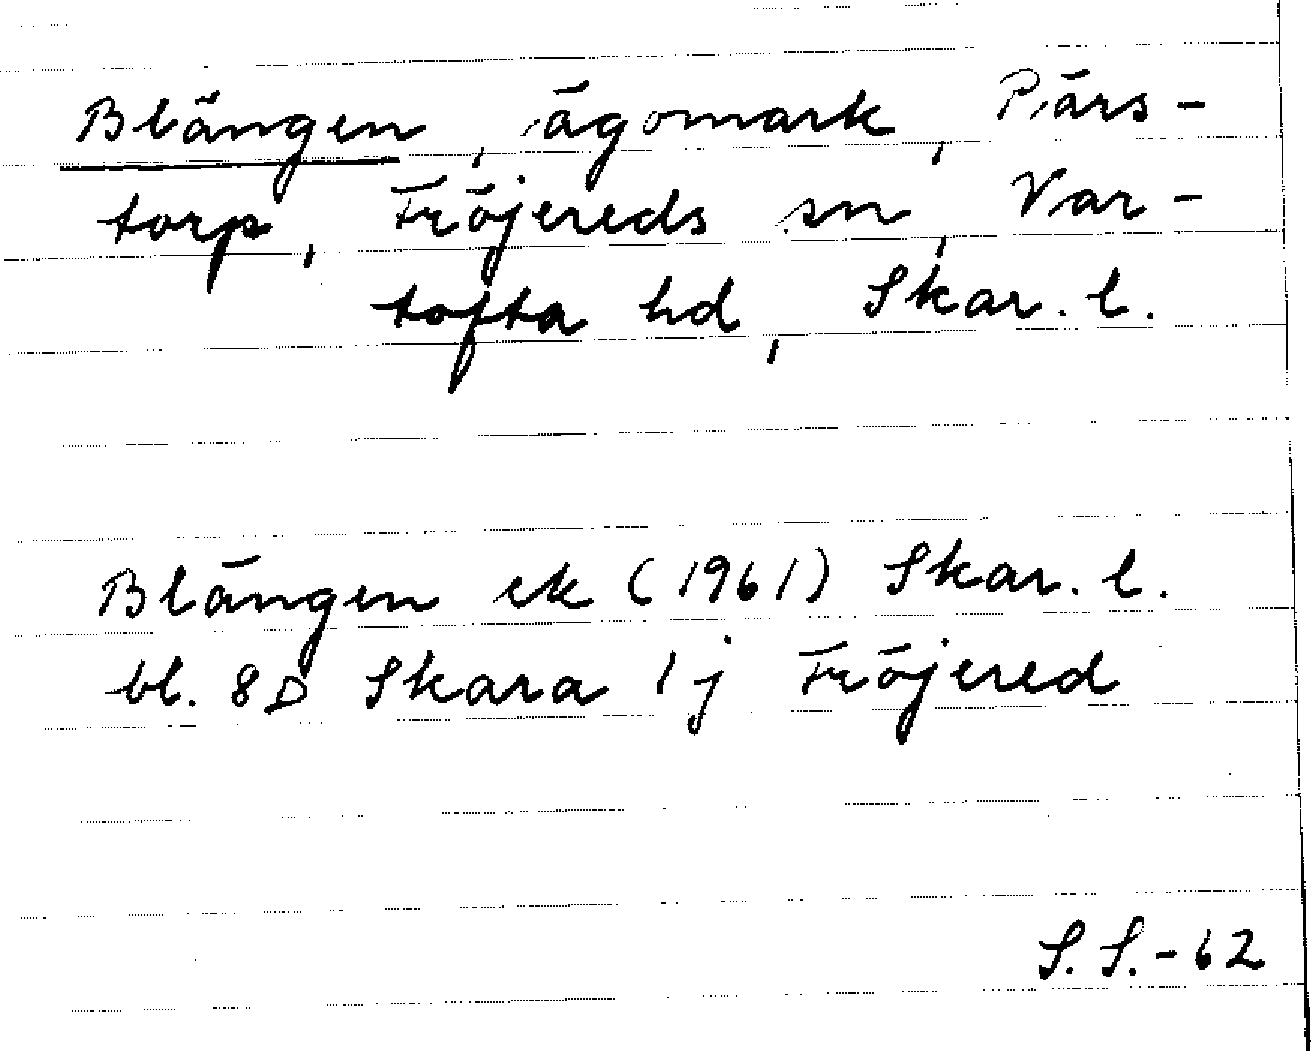 Blängen, ägomark, Pärs-
torp, Fröjereds sn, Var-
tofta hd, Skar. l.
Blängen ek (1961) Skar. l.
bl. 8D Skara 1j Fröjered
S. S. -62